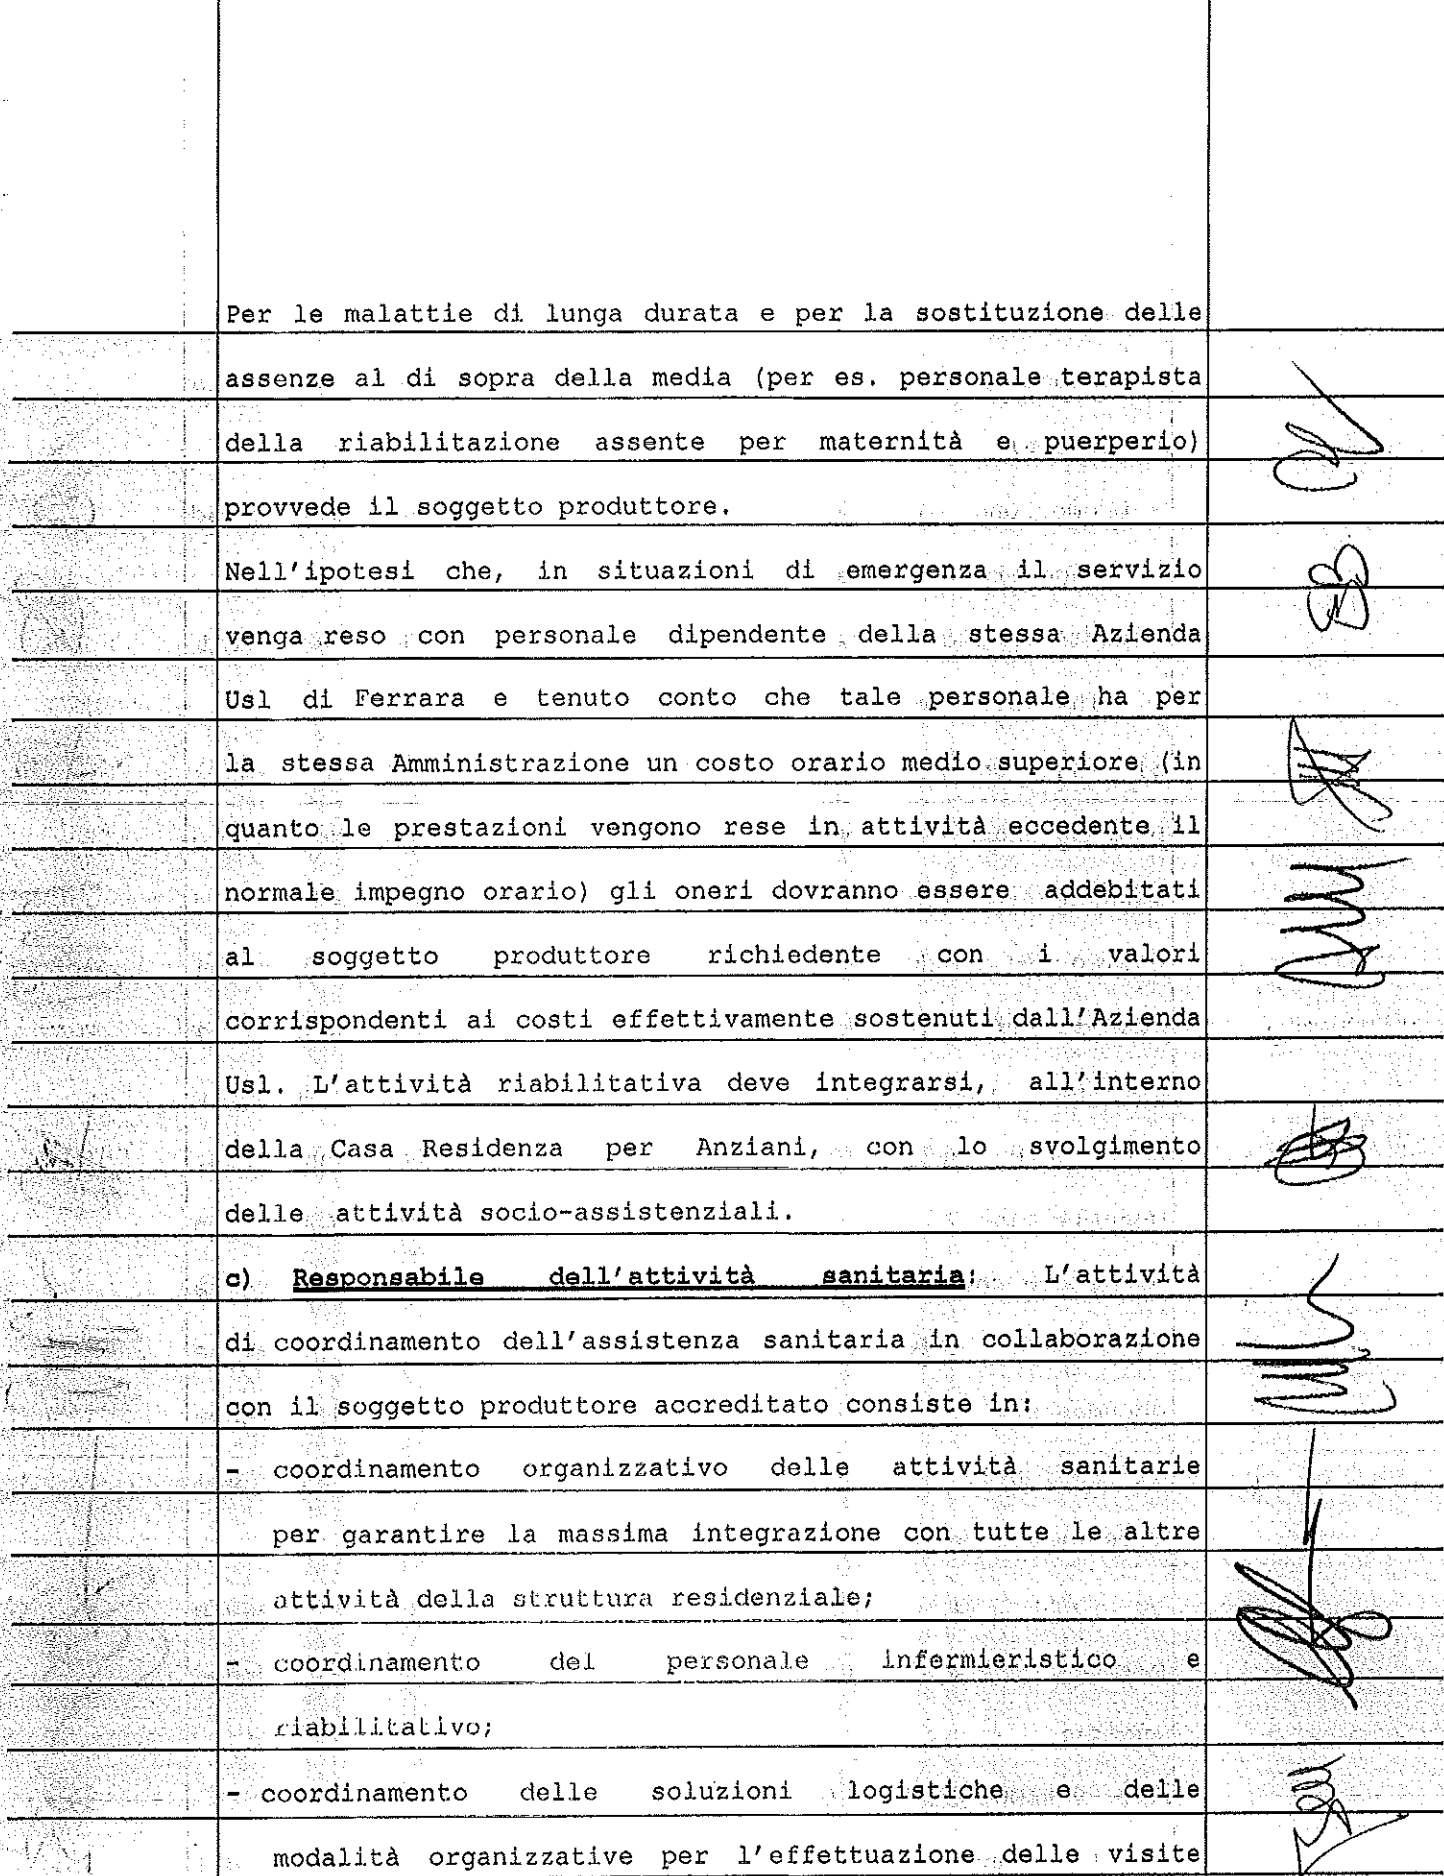 Per le malattie di lunga durata e per la sostituzione delle
assenze al di sopra della media (per es. personale terapista
della riabilitazione assente per maternità e puerperio)
provvede il soggetto produttore.
Nell'ipotesi che, in situazioni di emergenza il servizio
venga reso con personale dipendente della stessa Azienda
Usl di Ferrara e tenuto conto che tale personale ha per
la stessa Amministrazione un costo orario medio superiore (in
quanto le prestazioni vengono rese in attività eccedente il
normale impegno orario) gli oneri dovranno essere addebitati
al soggetto produttore richiedente con i valori
corrispondenti ai costi effettivamente sostenuti dall'Azienda
Usl. L'attività riabilitativa deve integrarsi, all'interno
della Casa Residenza per Anziani, con lo svolgimento
delle attività socio-assistenziali.
c) Responsabile dell'attività sanitaria: L'attività
di coordinamento dell'assistenza sanitaria in collaborazione
con il soggetto produttore accreditato consiste in:
- coordinamento organizzativo delle attività sanitarie
per garantire la massima integrazione con tutte le altre
attività della struttura residenziale;
- coordinamento del personale infermieristico e
riabilitativo;
- coordinamento delle soluzioni logistiche e delle
modalità organizzative per l'effettuazione delle visite